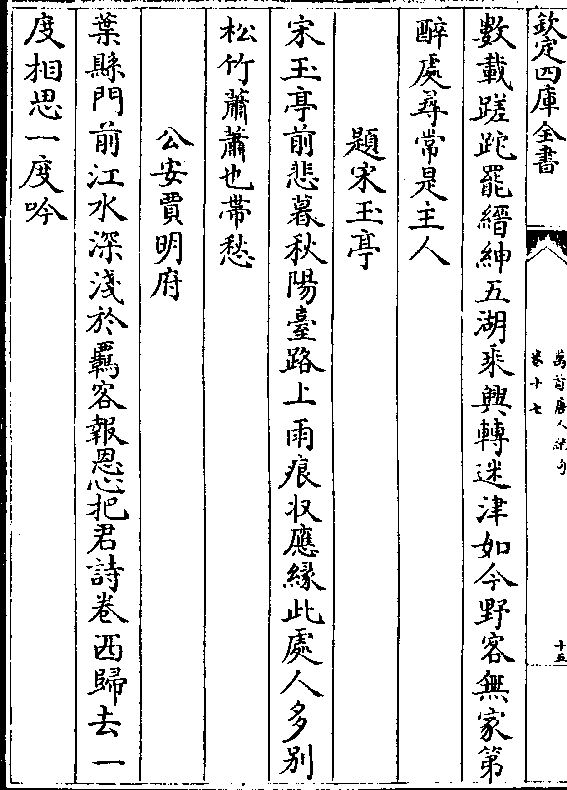 欽定四庫全書
萬首唐人絶句
卷十七
十五
數載蹉跎罷縉紳五湖乘興轉迷津如今野客無家第
醉處尋常是主人
題宋玉亭
宋玉亭前悲暮秋陽臺路上雨痕收應緣此處人多别
松竹蕭蕭也帶愁
公安賈明府
葉縣門前江水深淺於羈客報恩心把君詩卷西歸去一
度相思一度吟